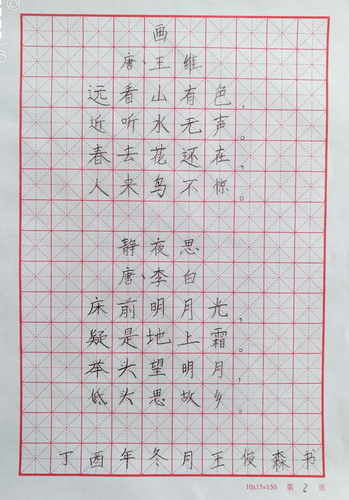 画
唐、王维
远看山有色，
近听水无声。
春去花还在，
人来鸟不惊。
静夜思
唐、李白
床前明月光，
疑是地上霜。
举头望明月，
低头思故乡。
丁酉年冬月王俊森书
10x15=150 第 2 页